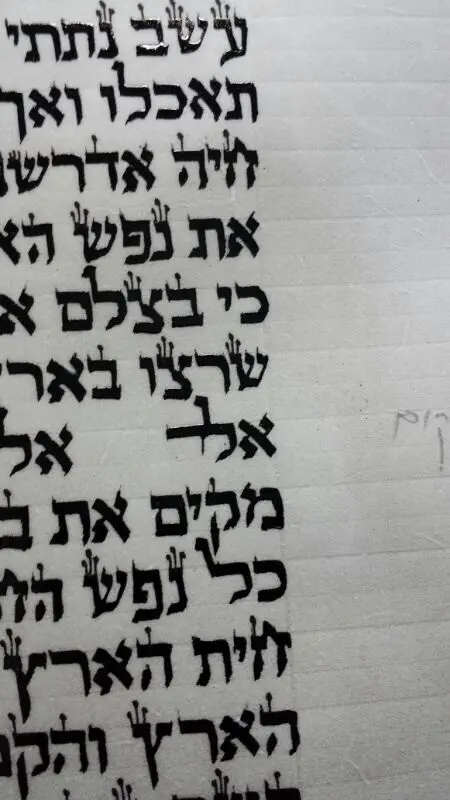 עשב נתתי
תאכלו ואך
חיה אדרשנ
את נפש הא
כי בצלם א
שרצו באר
אל אל
מקים את ב
כל נפש הח
חית הארץ
הארץ והקמ